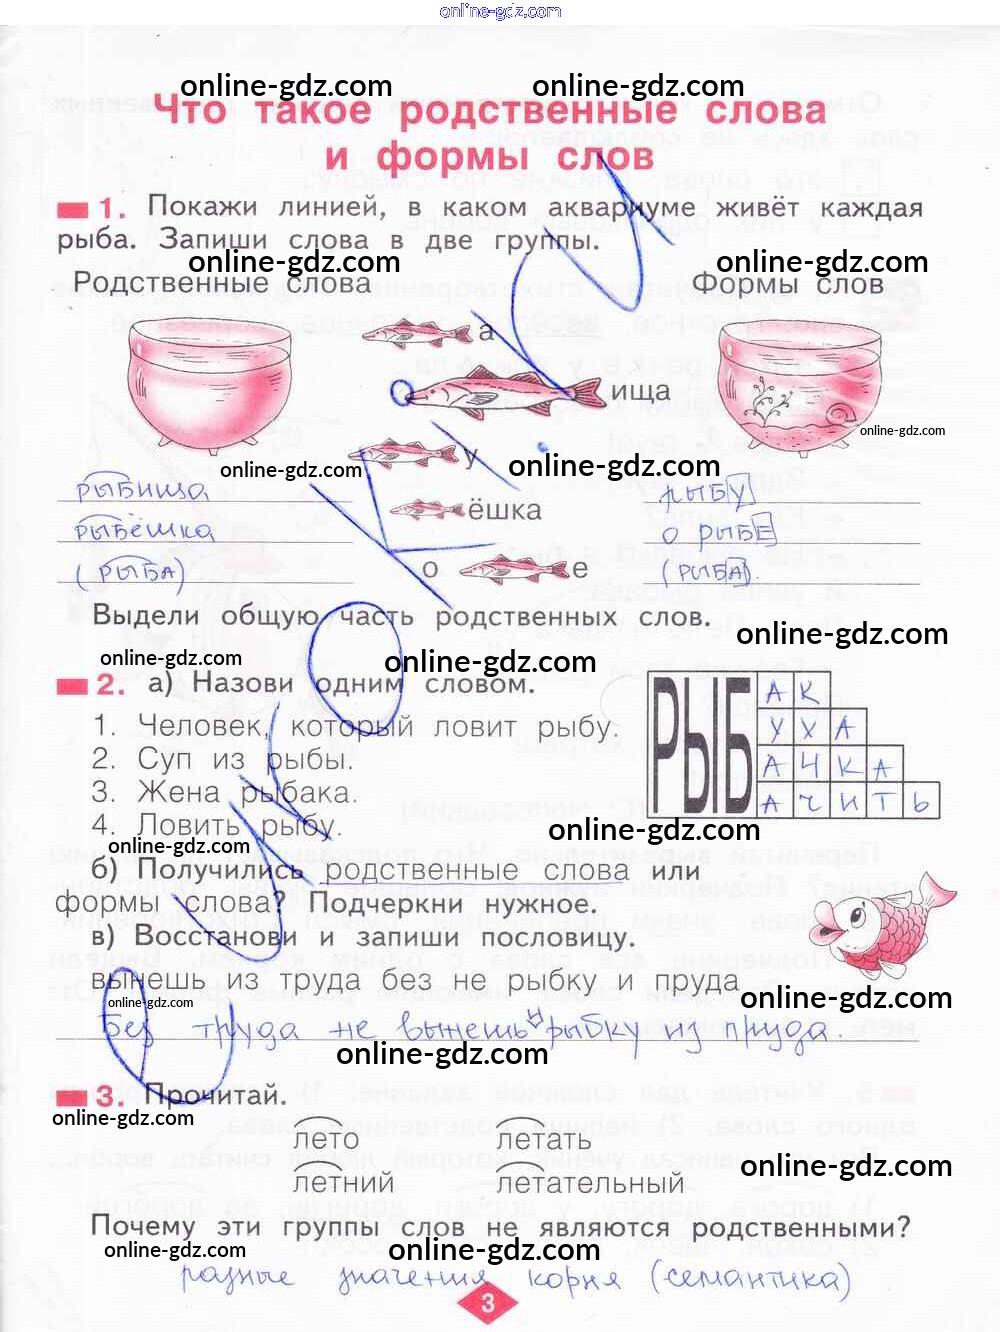 online-gdz.com
online-gdz.com online-gdz.com
Что такое родственные слова
и формы слов
1. Покажи линией, в каком аквариуме живёт каждая
рыба. Запиши слова в две группы.
online-gdz.com online-gdz.com online-gdz.com
Родственные слова Формы слов
а
ища
online-gdz.com
у
online-gdz.com online-gdz.com
рыбища рыбу
ёшка
рыбёшка о рыбе
о е
(рыба) (рыба)
Выдели общую часть родственных слов.
online-gdz.com
online-gdz.com online-gdz.com
2. а) Назови одним словом.
1. Человек, который ловит рыбу.
2. Суп из рыбы.
3. Жена рыбака.
4. Ловить рыбу.
РЫБ
АК
УХА
АЧКА
АЧИТЬ
online-gdz.com online-gdz.com
б) Получились родственные слова или
формы слова? Подчеркни нужное.
в) Восстанови и запиши пословицу.
вынешь из труда без не рыбку и пруда
online-gdz.com online-gdz.com
Без труда не вынешь рыбку из пруда.
online-gdz.com
3. Прочитай.
online-gdz.com
лето летать
online-gdz.com
летний летательный
Почему эти группы слов не являются родственными?
online-gdz.com online-gdz.com online-gdz.com
разные значения корня (семантика)
3